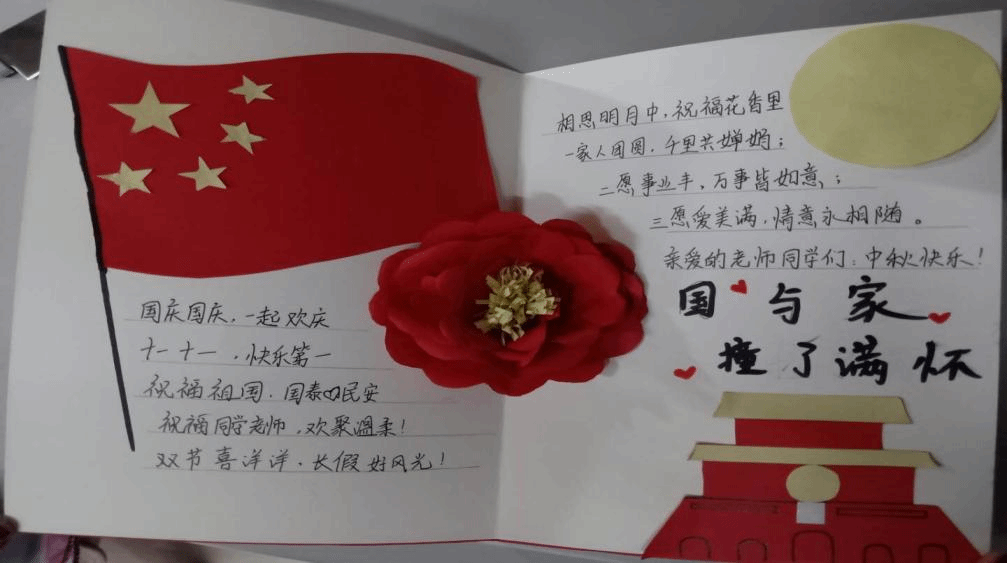 国庆国庆，一起欢庆
十一十一，快乐第一
祝福祖国，国泰民安
祝福同学老师，欢聚温柔！
双节喜洋洋，长假好风光！
相思明月中，祝福花香里
一家人团圆，千里共婵娟；
二愿事业丰，万事皆如意；
三愿爱美满，情意永相随。
亲爱的老师同学们：中秋快乐！
国与家
撞了满怀